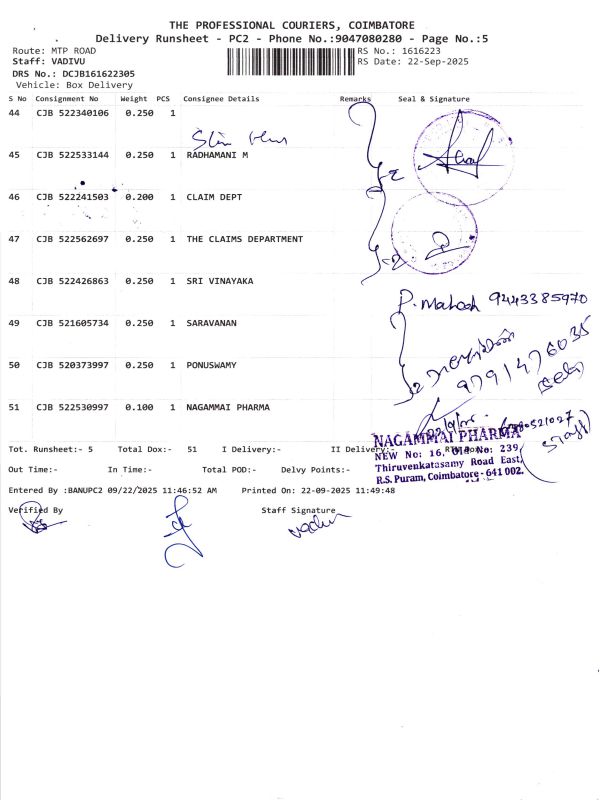 THE PROFESSIONAL COURIERS, COIMBATORE
Delivery Runsheet - PC2 - Phone No.:9047080280 - Page No.:5
Route: MTP ROAD RS No.: 1616223
Staff: VADIVU RS Date: 22-Sep-2025
DRS No.: DCJB161622305
Vehicle: Box Delivery
S No Consignment No Weight PCS Consignee Details Remarks Seal & Signature
44 CJB 522340106 0.250 1
45 CJB 522533144 0.250 1 RADHAMANI M
2
46 CJB 522241503 0.200 1 CLAIM DEPT
47 CJB 522562697 0.250 1 THE CLAIMS DEPARTMENT
2
48 CJB 522426863 0.250 1 SRI VINAYAKA
P. Mahesh 9443385970
49 CJB 521605734 0.250 1 SARAVANAN
50 CJB 520373997 0.250 1 PONUSWAMY
2
9791476035
51 CJB 522530997 0.100 1 NAGAMMAI PHARMA
NAGAMMAI PHARMA
NEW No: 16, Old No: 239,
Thiruvenkatasamy Road East,
R.S. Puram, Coimbatore - 641 002.
Tot. Runsheet:- 5 Total Dox:- 51 I Delivery:- II Delivery:-
Out Time:- In Time:- Total POD:- Delvy Points:-
Entered By :BANUPC2 09/22/2025 11:46:52 AM Printed On: 22-09-2025 11:49:48
Verified By Staff Signature
vadivu